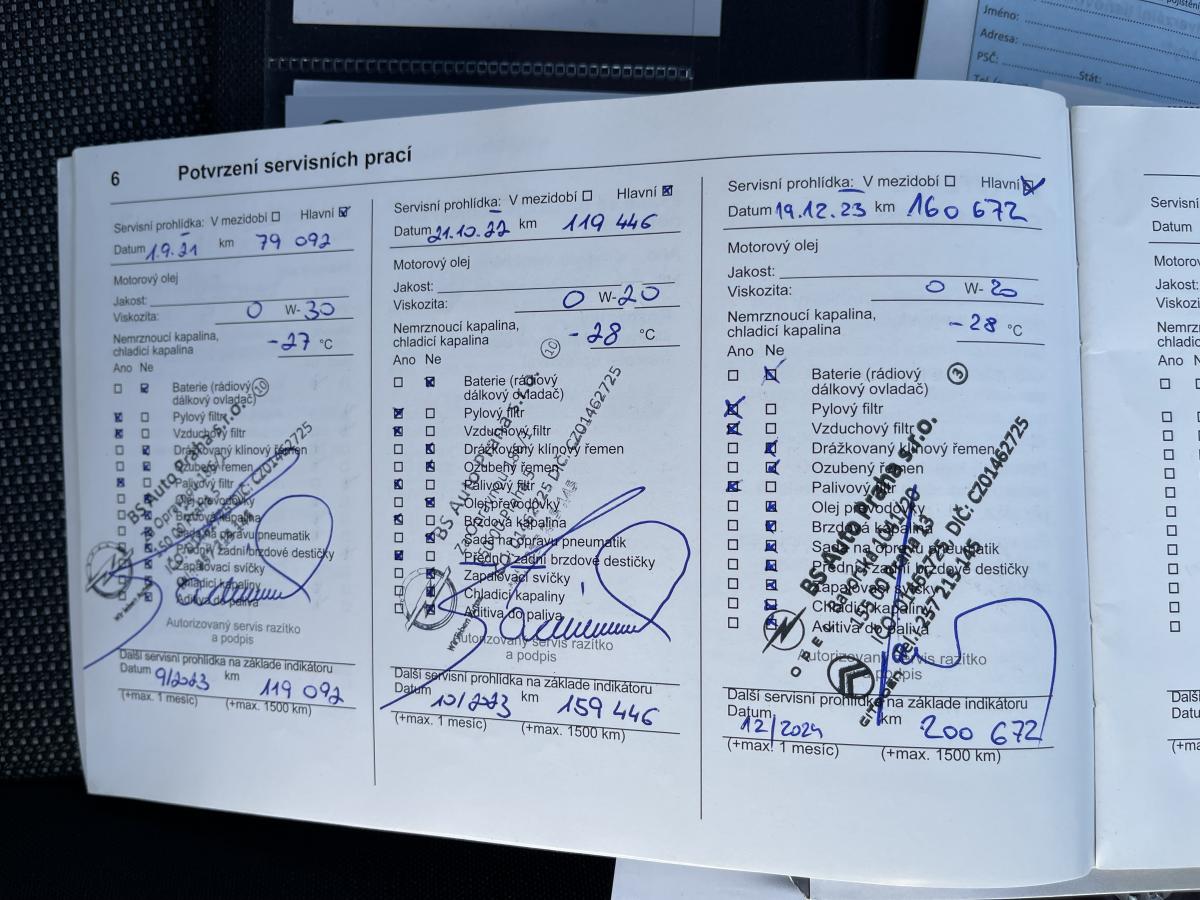 pojištění
Jméno:
Adresa:
PSČ:
Stát:
6 Potvrzení servisních prací
Servisní prohlídka: V mezidobí Hlavní
Datum 1.9.21 km 79 092
Motorový olej
Jakost:
Viskozita: 0 W-30
Nemrznoucí kapalina,
chladicí kapalina -27 °C
Ano Ne
Baterie (rádiový
dálkový ovladač)
10
Pylový filtr
Vzduchový filtr
Drážkovaný klínový řemen
Ozubený řemen
Palivový filtr
Olej převodovky
Brzdová kapalina
Sada na opravu pneumatik
Přední/zadní brzdové destičky
Zapalovací svíčky
Chladicí kapaliny
Aditiva do paliva
BS Auto Praha s.r.o.
DIČ: CZ01462725
Autorizovaný servis razítko
a podpis
Další servisní prohlídka na základě indikátoru
Datum 9/2023 km 119 092
(+max. 1 mesíc) (+max. 1500 km)
Servisní prohlídka: V mezidobí Hlavní
Datum 21.10.22 km 119 446
Motorový olej
Jakost:
Viskozita: 0 W-20
Nemrznoucí kapalina,
chladicí kapalina -28 °C
Ano Ne
10
Baterie (rádiový
dálkový ovladač)
Pylový filtr
Vzduchový filtr
Drážkovaný klínový řemen
Ozubený řemen
Palivový filtr
Olej převodovky
Brzdová kapalina
Sada na opravu pneumatik
Přední/zadní brzdové destičky
Zapalovací svíčky
Chladicí kapaliny
Aditiva do paliva
BS Auto Praha s.r.o.
DIČ: CZ01462725
Autorizovaný servis razítko
a podpis
Další servisní prohlídka na základě indikátoru
Datum 10/2023 km 159 446
(+max. 1 mesíc) (+max. 1500 km)
Servisní prohlídka: V mezidobí Hlavní
Datum 19.12.23 km 160 672
Motorový olej
Jakost:
Viskozita: 0 W-20
Nemrznoucí kapalina,
chladicí kapalina -28 °C
Ano Ne
Baterie (rádiový
dálkový ovladač)
3
Pylový filtr
Vzduchový filtr
Drážkovaný klínový řemen
Ozubený řemen
Palivový filtr
Olej převodovky
Brzdová kapalina
Sada na opravu pneumatik
Přední/zadní brzdové destičky
Zapalovací svíčky
Chladicí kapaliny
Aditiva do paliva
BS Auto Praha s.r.o.
155 00 Praha 13
IČO: 01462725, DIČ: CZ01462725
Tel.: 257 215 145
OPEL
CITROËN
Autorizovaný servis razítko
a podpis
Další servisní prohlídka na základě indikátoru
Datum 12/2024 km 200 672
(+max. 1 mesíc) (+max. 1500 km)
Servisní
Datum
Motorov
Jakost:
Viskozi
Nemrz
chladic
Ano Ne
Další
Datu
(+ma